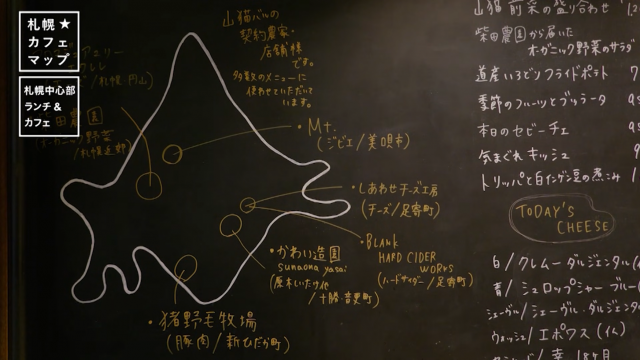 札幌★
カフェ
マップ
札幌中心部
ランチ&
カフェ
山猫バルの
契約農家・
店舗様
です。
多数のメニューに
使わせていただいて
います。
/札幌 円山)
農園
(オーガニック野菜
/札幌近郊)
・Mt.
(ジビエ/美唄市)
・しあわせチーズ工房
(チーズ/足寄町)
・BLANK
HARD CIDER
WORKS
(ハードサイダー/足寄町)
・かわい造園
sunaona yasai
(原木しいたけ他
/十勝・音更町)
・猪野毛牧場
(豚肉/新ひだか町)
山猫 前菜の盛り合わせ
柴田農園から届いた
オーガニック野菜のサラダ
道産いろどりフライドポテト
季節のフルーツとブッラータ
本日のセビーチェ
気まぐれキッシュ
トリッパと白インゲン豆の煮こみ
TODAY'S
CHEESE
白/クレムー・ダルジェンタル
青/シュロップシャーブルー
シェーヴル/シェーヴル・ダルジェンタ
ウォッシュ/エポワス(仏)